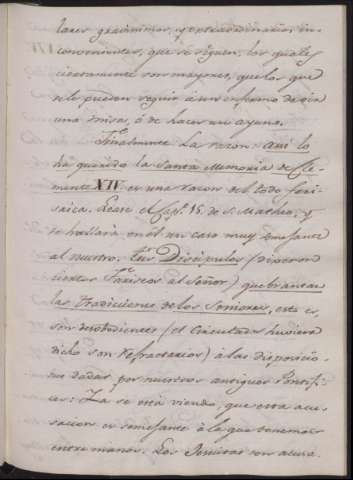 lares gravisimos, y extraordinarios in-
convenientes, que se siguen, los quales
ciertamente son mayores, que los que
se le pueden seguir á un enfermo de oir
una misa, ó de hacer un ayuno.
Finalmente La razon: aui lo
ha querido la Santa Memoria de Cle-
mente XIV. es una razon del todo fari-
saica. Lease el Cap. 15. de S. Matheo, y
se hallará en él un caso muy semejante
al nuestro. tus Discipulos (dixeron
ciertos Fariseos al Señor) quebrantan
las tradiciones de los Seniores, esto es,
son desobedientes (el Circulador huviera
dicho son refractarios) á las disposicio-
nes dadas por nuestros antiguos Pontifi-
ces: Ya se está viendo, que esta acu-
sacion es semejante á la que tenemos
entre manos. Los Jesuitas son acusa-